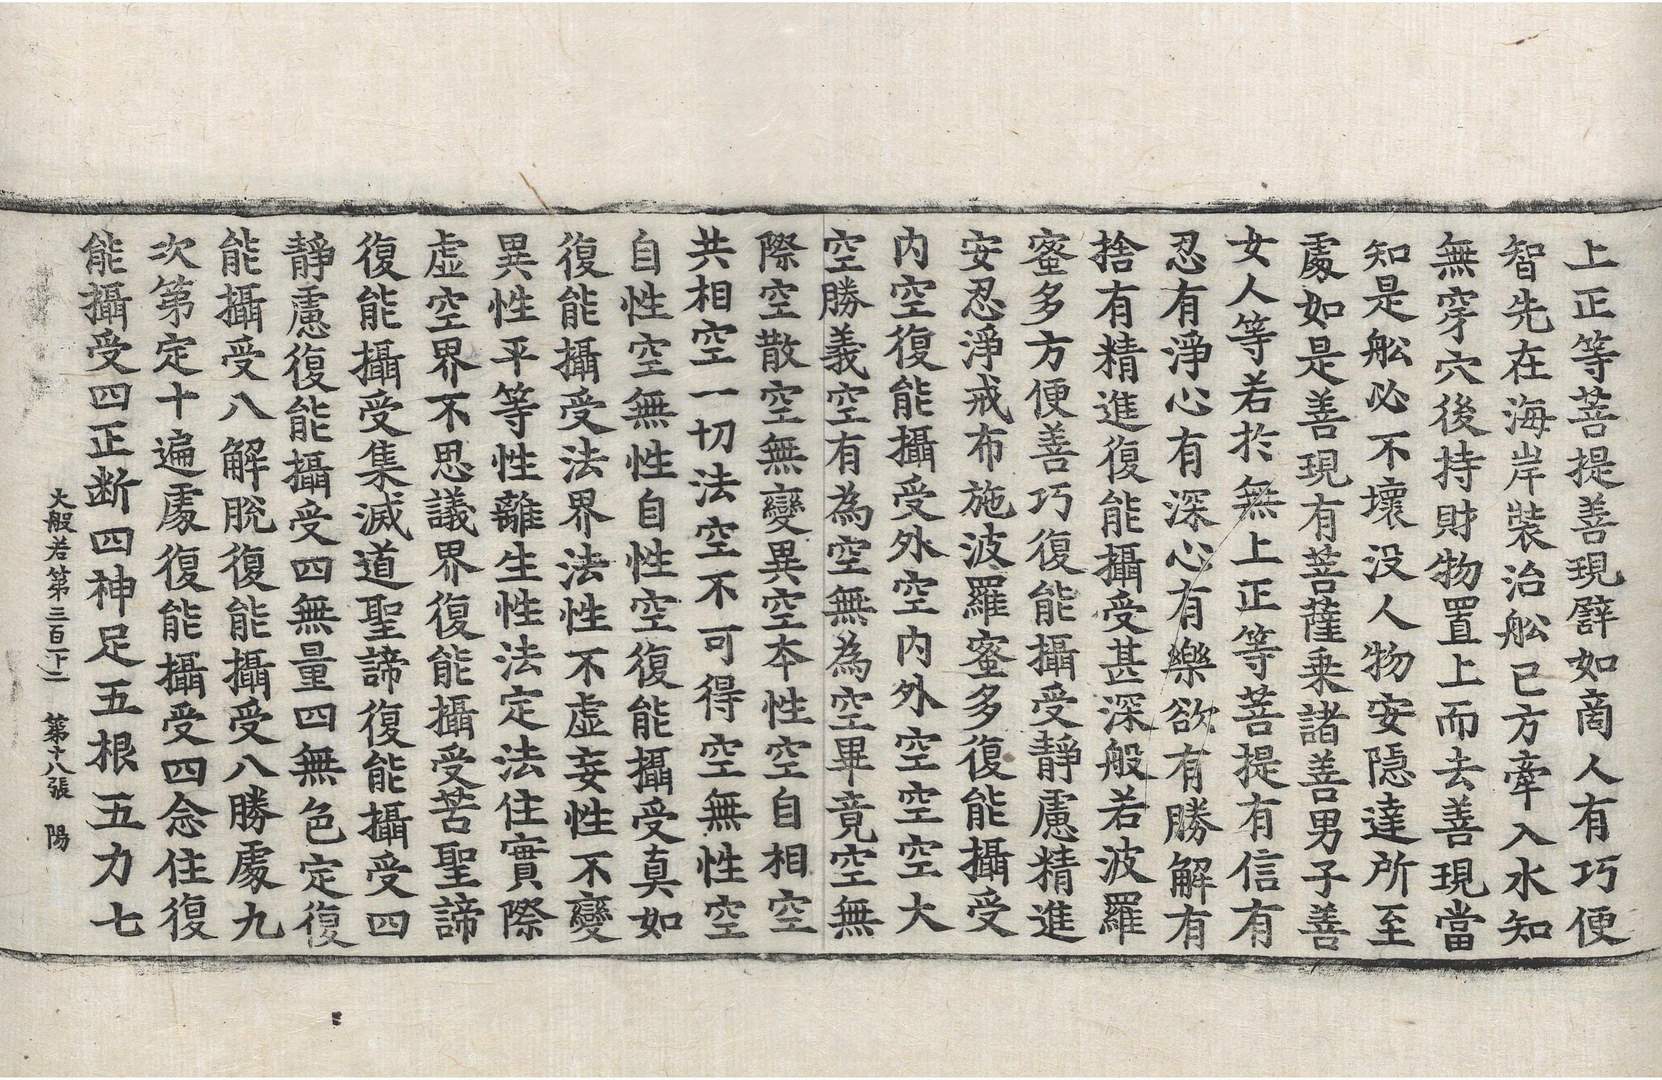 上正等菩提善現譬如商人有巧便
智先在海岸裝治舩已方牽入水知
無穿穴後持財物置上而去善現當
知是舩必不壞没人物安隱達所至
處如是善現有菩薩乘諸善男子善
女人等若於無上正等菩提有信有
忍有淨心有深心有樂欲有勝解有
捨有精進復能攝受甚深般若波羅
蜜多方便善巧復能攝受靜慮精進
安忍淨戒布施波羅蜜多復能攝受
内空復能攝受外空内外空空空大
空勝義空有為空無為空畢竟空無
際空散空無變異空本性空自相空
共相空一切法空不可得空無性空
自性空無性自性空復能攝受真如
復能攝受法界法性不虛妄性不變
異性平等性離生性法定法住實際
虛空界不思議界復能攝受苦聖諦
復能攝受集滅道聖諦復能攝受四
靜慮復能攝受四無量四無色定復
能攝受八解脫復能攝受八勝處九
次第定十遍處復能攝受四念住復
能攝受四正断四神足五根五力七
大般若第三百十二 第十八張 陽